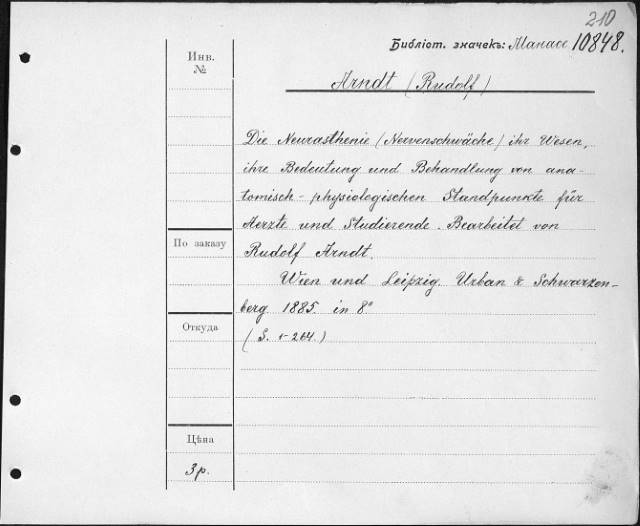 210
Библіот. значекъ: Манасс 10848.
Инв.
№
Arndt (Rudolf)
Die Neurasthenie (Nervenschwäche) ihr Wesen,
ihre Bedeutung und Behandlung von ana-
tomisch-physiologischen Standpunkte für
Aerzte und Studierende. Bearbeitet von
Rudolf Arndt.
По заказу
Wien und Leipzig. Urban & Schwarzen-
berg 1885. in 8°
Откуда
(S. 264.)
Цѣна
3 р.